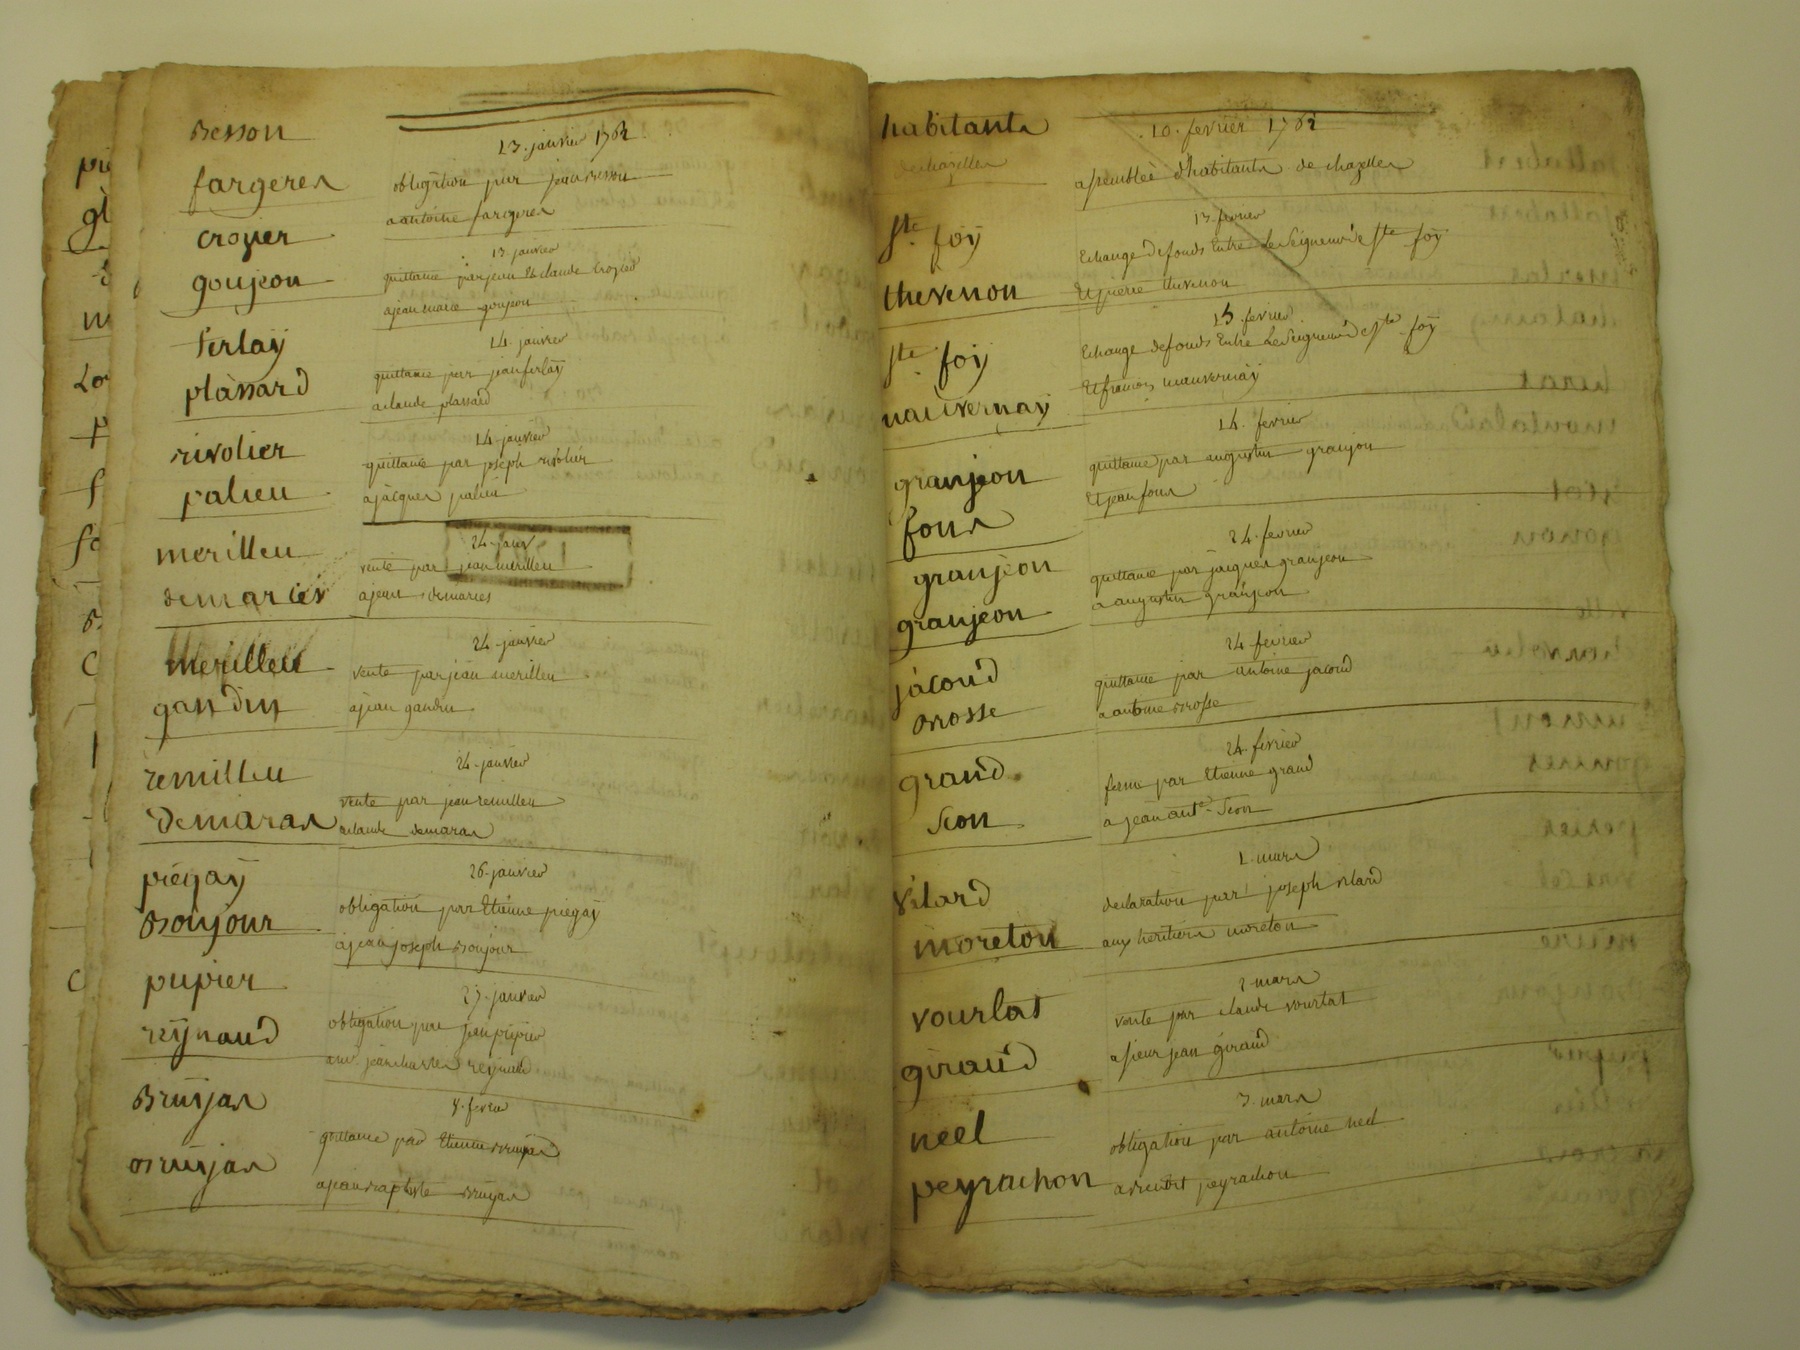 Besson
fargeres
13. janvier 1762
obligation par jean Besson
a antoine fargeres
crozier
goujeon
13. janvier
quittance par jean Et claude Crozier
a jean marie goujeon
ferlaÿ
plassard
14. janvier
quittance par jean ferlaÿ
a claude plassard
rivolier
palieu
14. janvier
quittance par joseph rivolier
a jacques palieu
merilleu
demaries
24. janv
vente par jean merilleu
a jean demaries
merilleu
gandin
24. janvier
vente par jean merilleu
a jean gandin
remilleu
Demaras
24. janvier
vente par jean remilleu
a claude demaras
piégaÿ
Bonjour
26. janvier
obligation par Etienne piegaÿ
a jean joseph Bonjour
pupier
reÿnaud
27. janvier
obligation par jean pupier
reÿnaud
Bruÿas
Bruÿas
8. fevrier
quittance par Etienne Bruÿas
a jean Baptiste Bruÿas
habitants
de chazelles
10. fevrier 1762
assemblèe d'habitants de chazelles
ste. foÿ
thevenon
13. fevrier
Echange de fonds Entre Le Seigneur de ste foÿ
Et pierre thevenon
ste. foÿ
mauvernaÿ
13. fevrier
Echange de fonds Entre Le Seigneur de ste foÿ
Et francois mauvernaÿ
granjeon
fons
14. fevrier
quittance par augustin granjon
Et jean fons
granjeon
granjeon
24. fevrier
quittance par jacques granjeon
a augustin granjeon
jàcoud
Brosse
24. fevrier
quittance par antoine jacoud
a antoine Brosse
grand
Seon
24. fevrier
ferme par Etienne grand
a jean ante. Seon
vilard
moreton
1. mars
declaration par joseph vilard
aux heritiers moreton
vourlat
giraud
2 mars
vente par claude vourlat
a sieur jean giraud
néel
peyrachon
3. mars
obligation par antoine neel
a Benoit peyrachon